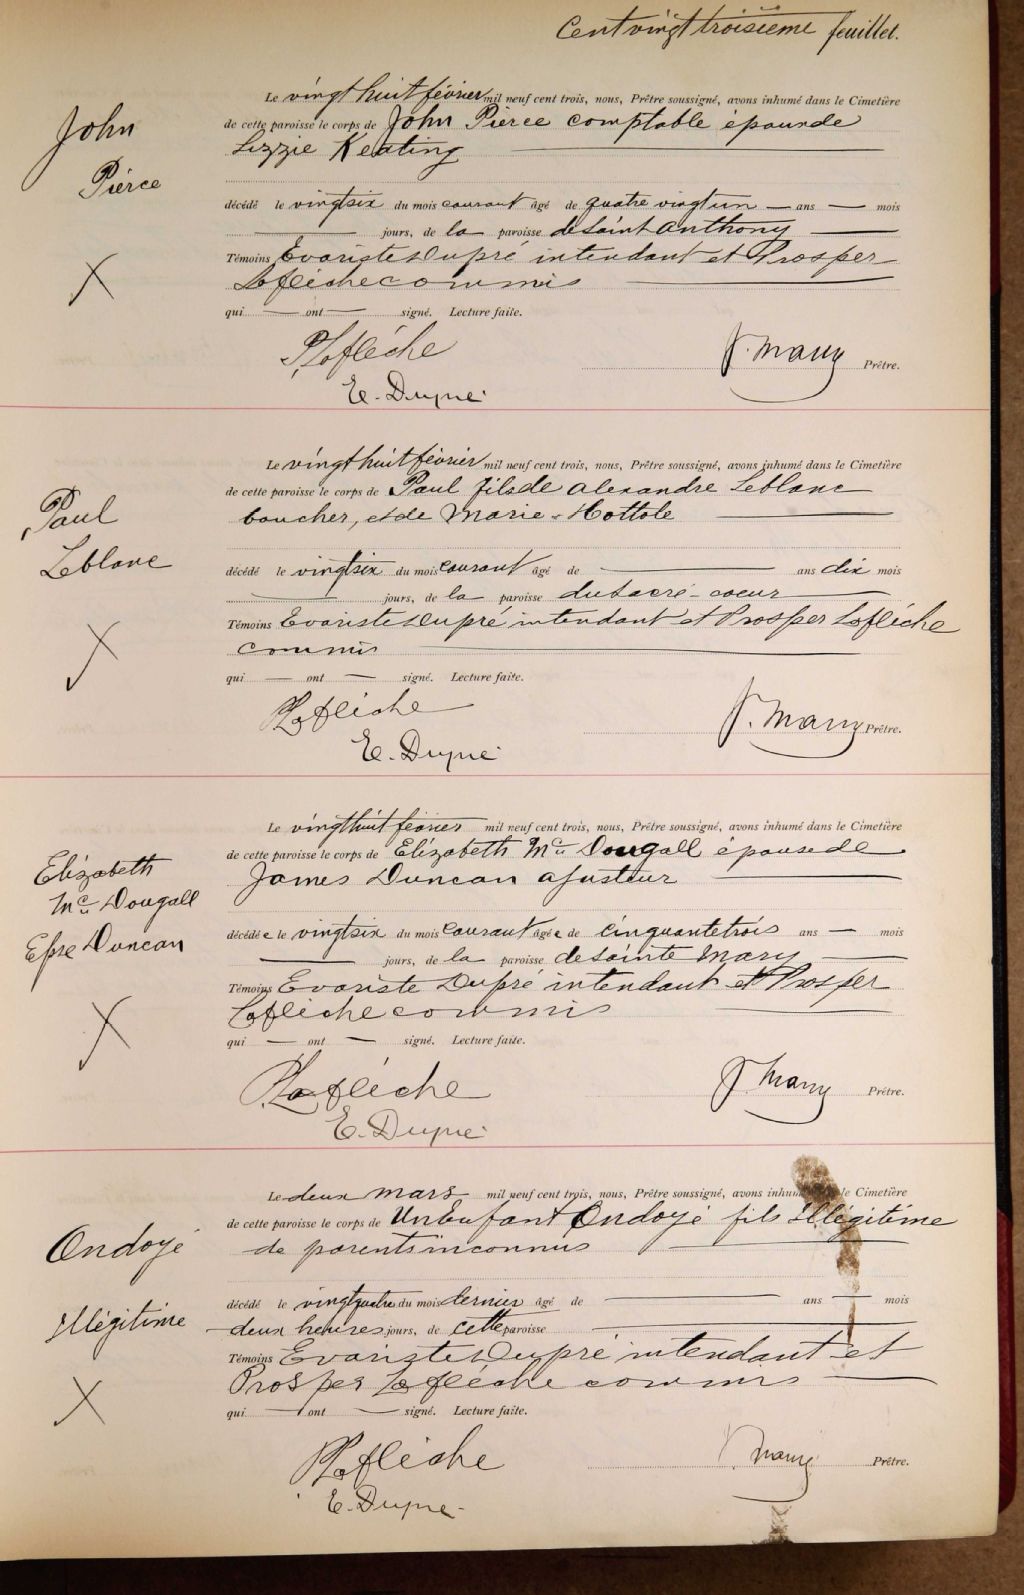 Cent vingt troisième feuillet.
John
Pierce
Le vingt huit février mil neuf cent trois, nous, Prêtre soussigné, avons inhumé dans le Cimetière
de cette paroisse le corps de John Pierce comptable épouxde
Lizzie Keating
décédé le vingtsix du mois courant âgé de quatre vingtun — ans — mois
— jours, de la paroisse de Saint Anthony —
Témoins Evariste Dupré intendant et Prosper
Laflèche commis
qui — ont — signé. Lecture faite.
P. Laflèche
J. Marry Prêtre.
E. Dupré
Paul
Leblanc
Le vingt huit février mil neuf cent trois, nous, Prêtre soussigné, avons inhumé dans le Cimetière
de cette paroisse le corps de Paul fils de Alexandre Leblanc
boucher, et de Marie Hottote
décédé le vingtsix du mois courant âgé de — ans dix mois
— jours, de la paroisse du Sacré-coeur
Témoins Evariste Dupré intendant et Prosper Laflèche
commis
qui — ont — signé. Lecture faite.
P Laflèche
J. Marry Prêtre.
E. Dupré
Elizabeth
Mc Dougall
Epse Duncan
Le vingt huit février mil neuf cent trois, nous, Prêtre soussigné, avons inhumé dans le Cimetière
de cette paroisse le corps de Elizabeth Mc Dougall épouse de
James Duncan ajusteur
décédée le vingtsix du mois courant âgée de cinquantetrois ans — mois
— jours, de la paroisse de Sainte Mary —
Témoins Evariste Dupré intendant et Prosper
Laflèche commis
qui — ont — signé. Lecture faite.
P. Laflèche
J. Marry Prêtre.
E. Dupré
Ondoyé
Illégitime
Le deux mars mil neuf cent trois, nous, Prêtre soussigné, avons inhumé le Cimetière
de cette paroisse le corps de Un Enfant Ondoyé fils Illégitime
de parents inconnus
décédé le vingtquatre du mois dernier âgé de — ans — mois
deux heures jours, de cette paroisse —
Témoins Evariste Dupré intendant et
Prosper Laflèche commis
qui — ont — signé. Lecture faite.
P Laflèche
J. Marry Prêtre.
E. Dupré